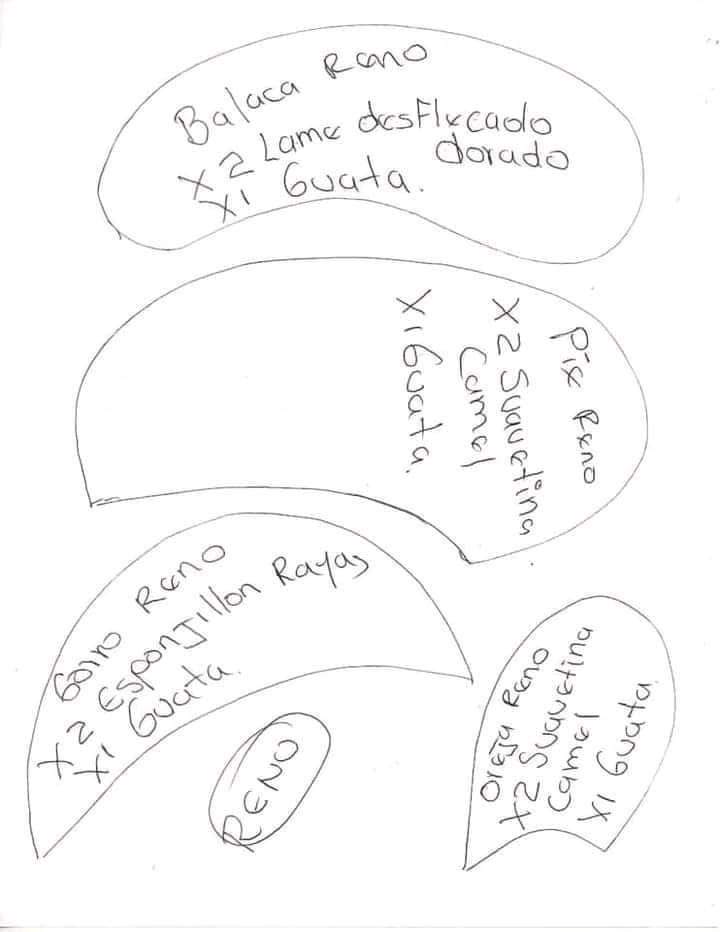 Balaca Reno
X2 Lame desflecado
dorado
X1 Guata.
Pie Reno
X2 Suavetina
Camel
X1 Guata.
Gorro Reno
X2 Esponjillon Rayas
X1 Guata.
RENO
Oreja Reno
X2 Suavetina
Camel
X1 Guata